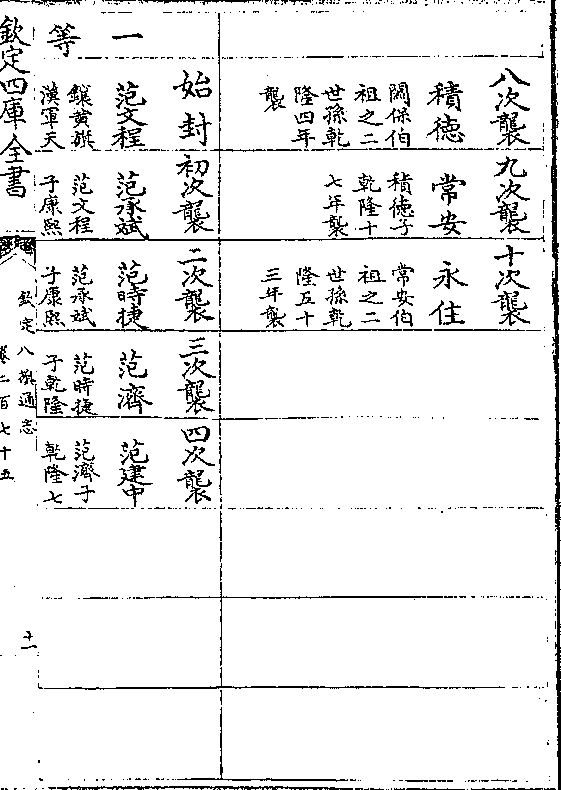 八次襲
積德
闗保伯
祖之二
世孫乾
隆四年
襲
九次襲
常安
積德子
乾隆十
七年襲
十次襲
永住
常安伯
祖之二
世孫乾
隆五十
三年襲
一等
始封
范文程
鑲黄旗
漢軍天
初次襲
范承斌
范文程
子康熙
二次襲
范時捷
范承斌
子康熙
三次襲
范濟
范時捷
子乾隆
四次襲
范建中
范濟子
乾隆七
欽定四庫全書
欽定八旗通志
卷二百七十五
十一